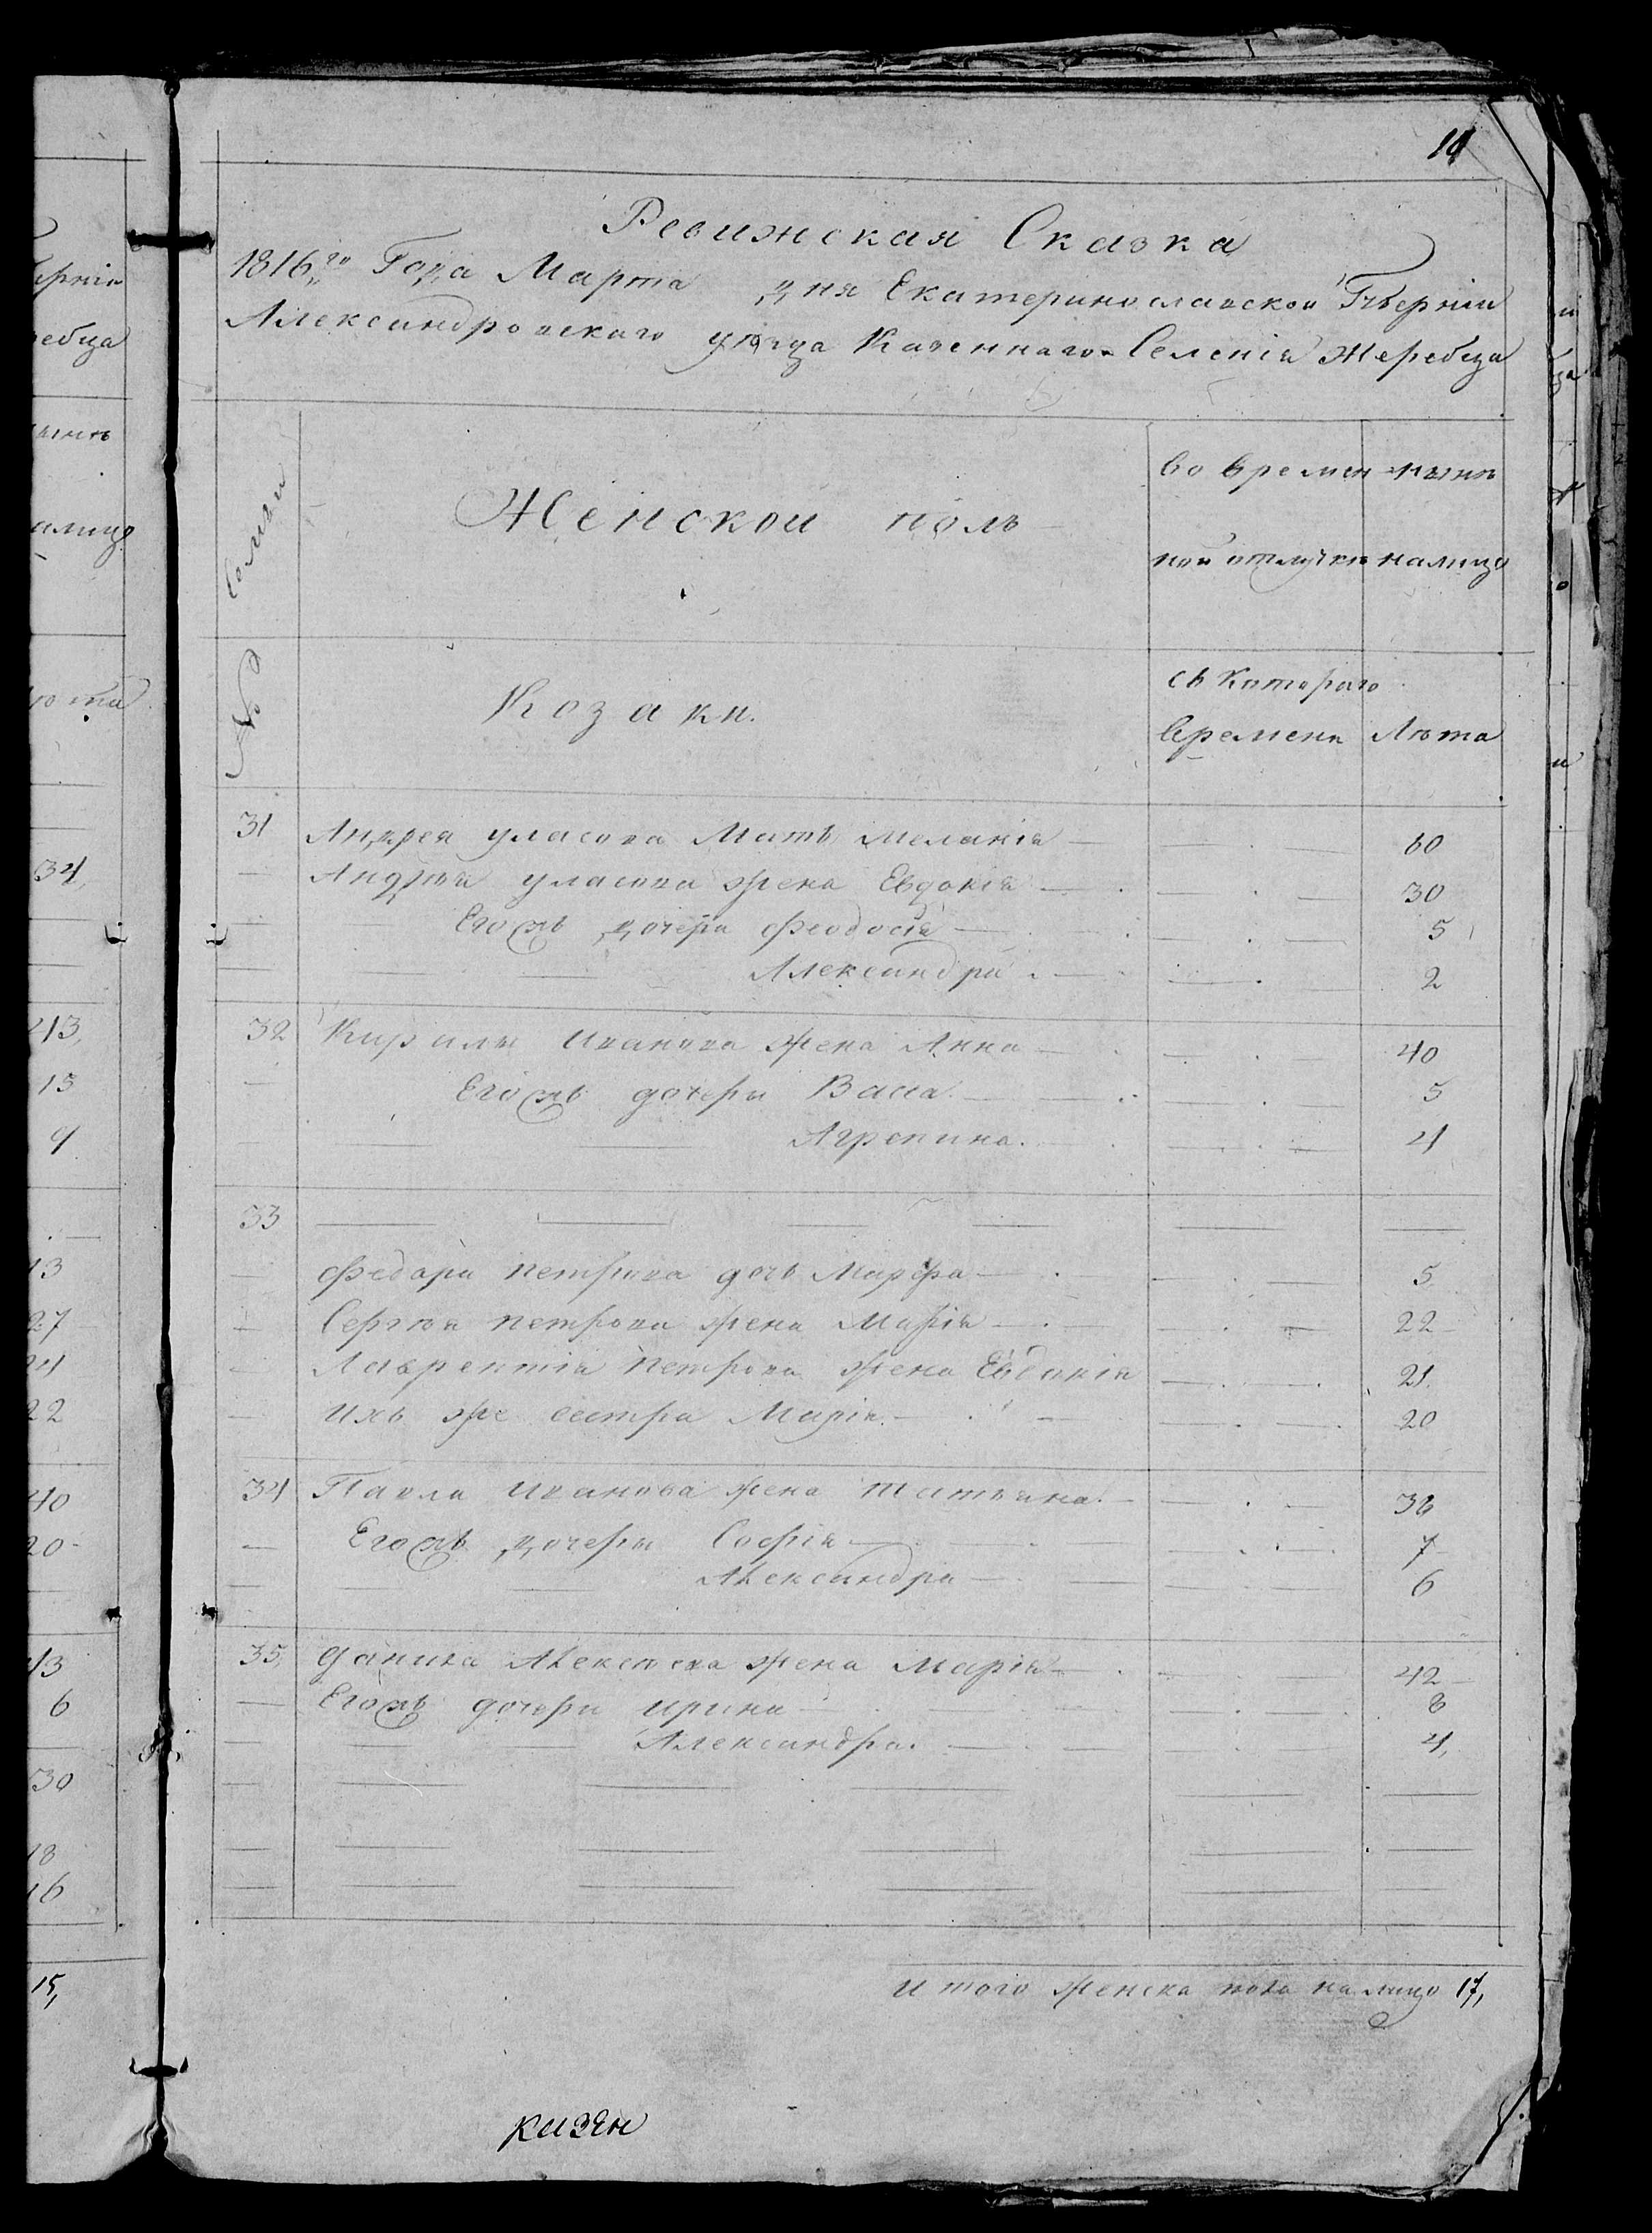 Ревижская Сказка
1816го Года Марта дня Екатеринославской Гъберніи
Александровскаго уезда Казеннаго Селенія Жеребца
Семьи
Женскои полъ
во времен
ной отлучке
ныне
налицо
№
Козаки.
съ Котораго
Времени
Лета
31 Андрея уласова Мать Меланія 60
Андрея уласова жена Евдокія 30
Егожъ дочери Феодосія 5
Александра 2
32 Кирилы Иванова жена Анна 40
Егожъ дочери Васа 5
Агрепина. 4
33
Федора Петрова дочь Марфа 5
Сергея Петрова жена Марія 22
Лаврентія Петрова жена Евдокія 21
Ихъ же сестра Марія 20
34 Павла Иванова жена Татьяна. 36
Егожъ дочери Софія 7
Александра 6
35 Данила Алексеева жена Марія 42
Егожъ дочери ирина 8
Александра. 4,
Итого женска пола на лицо 17,
ернін
ребца
ныне
алицо
ета
34,
43,
15
4
13
27
24
22
40
20
43
6
30
18
16
15,